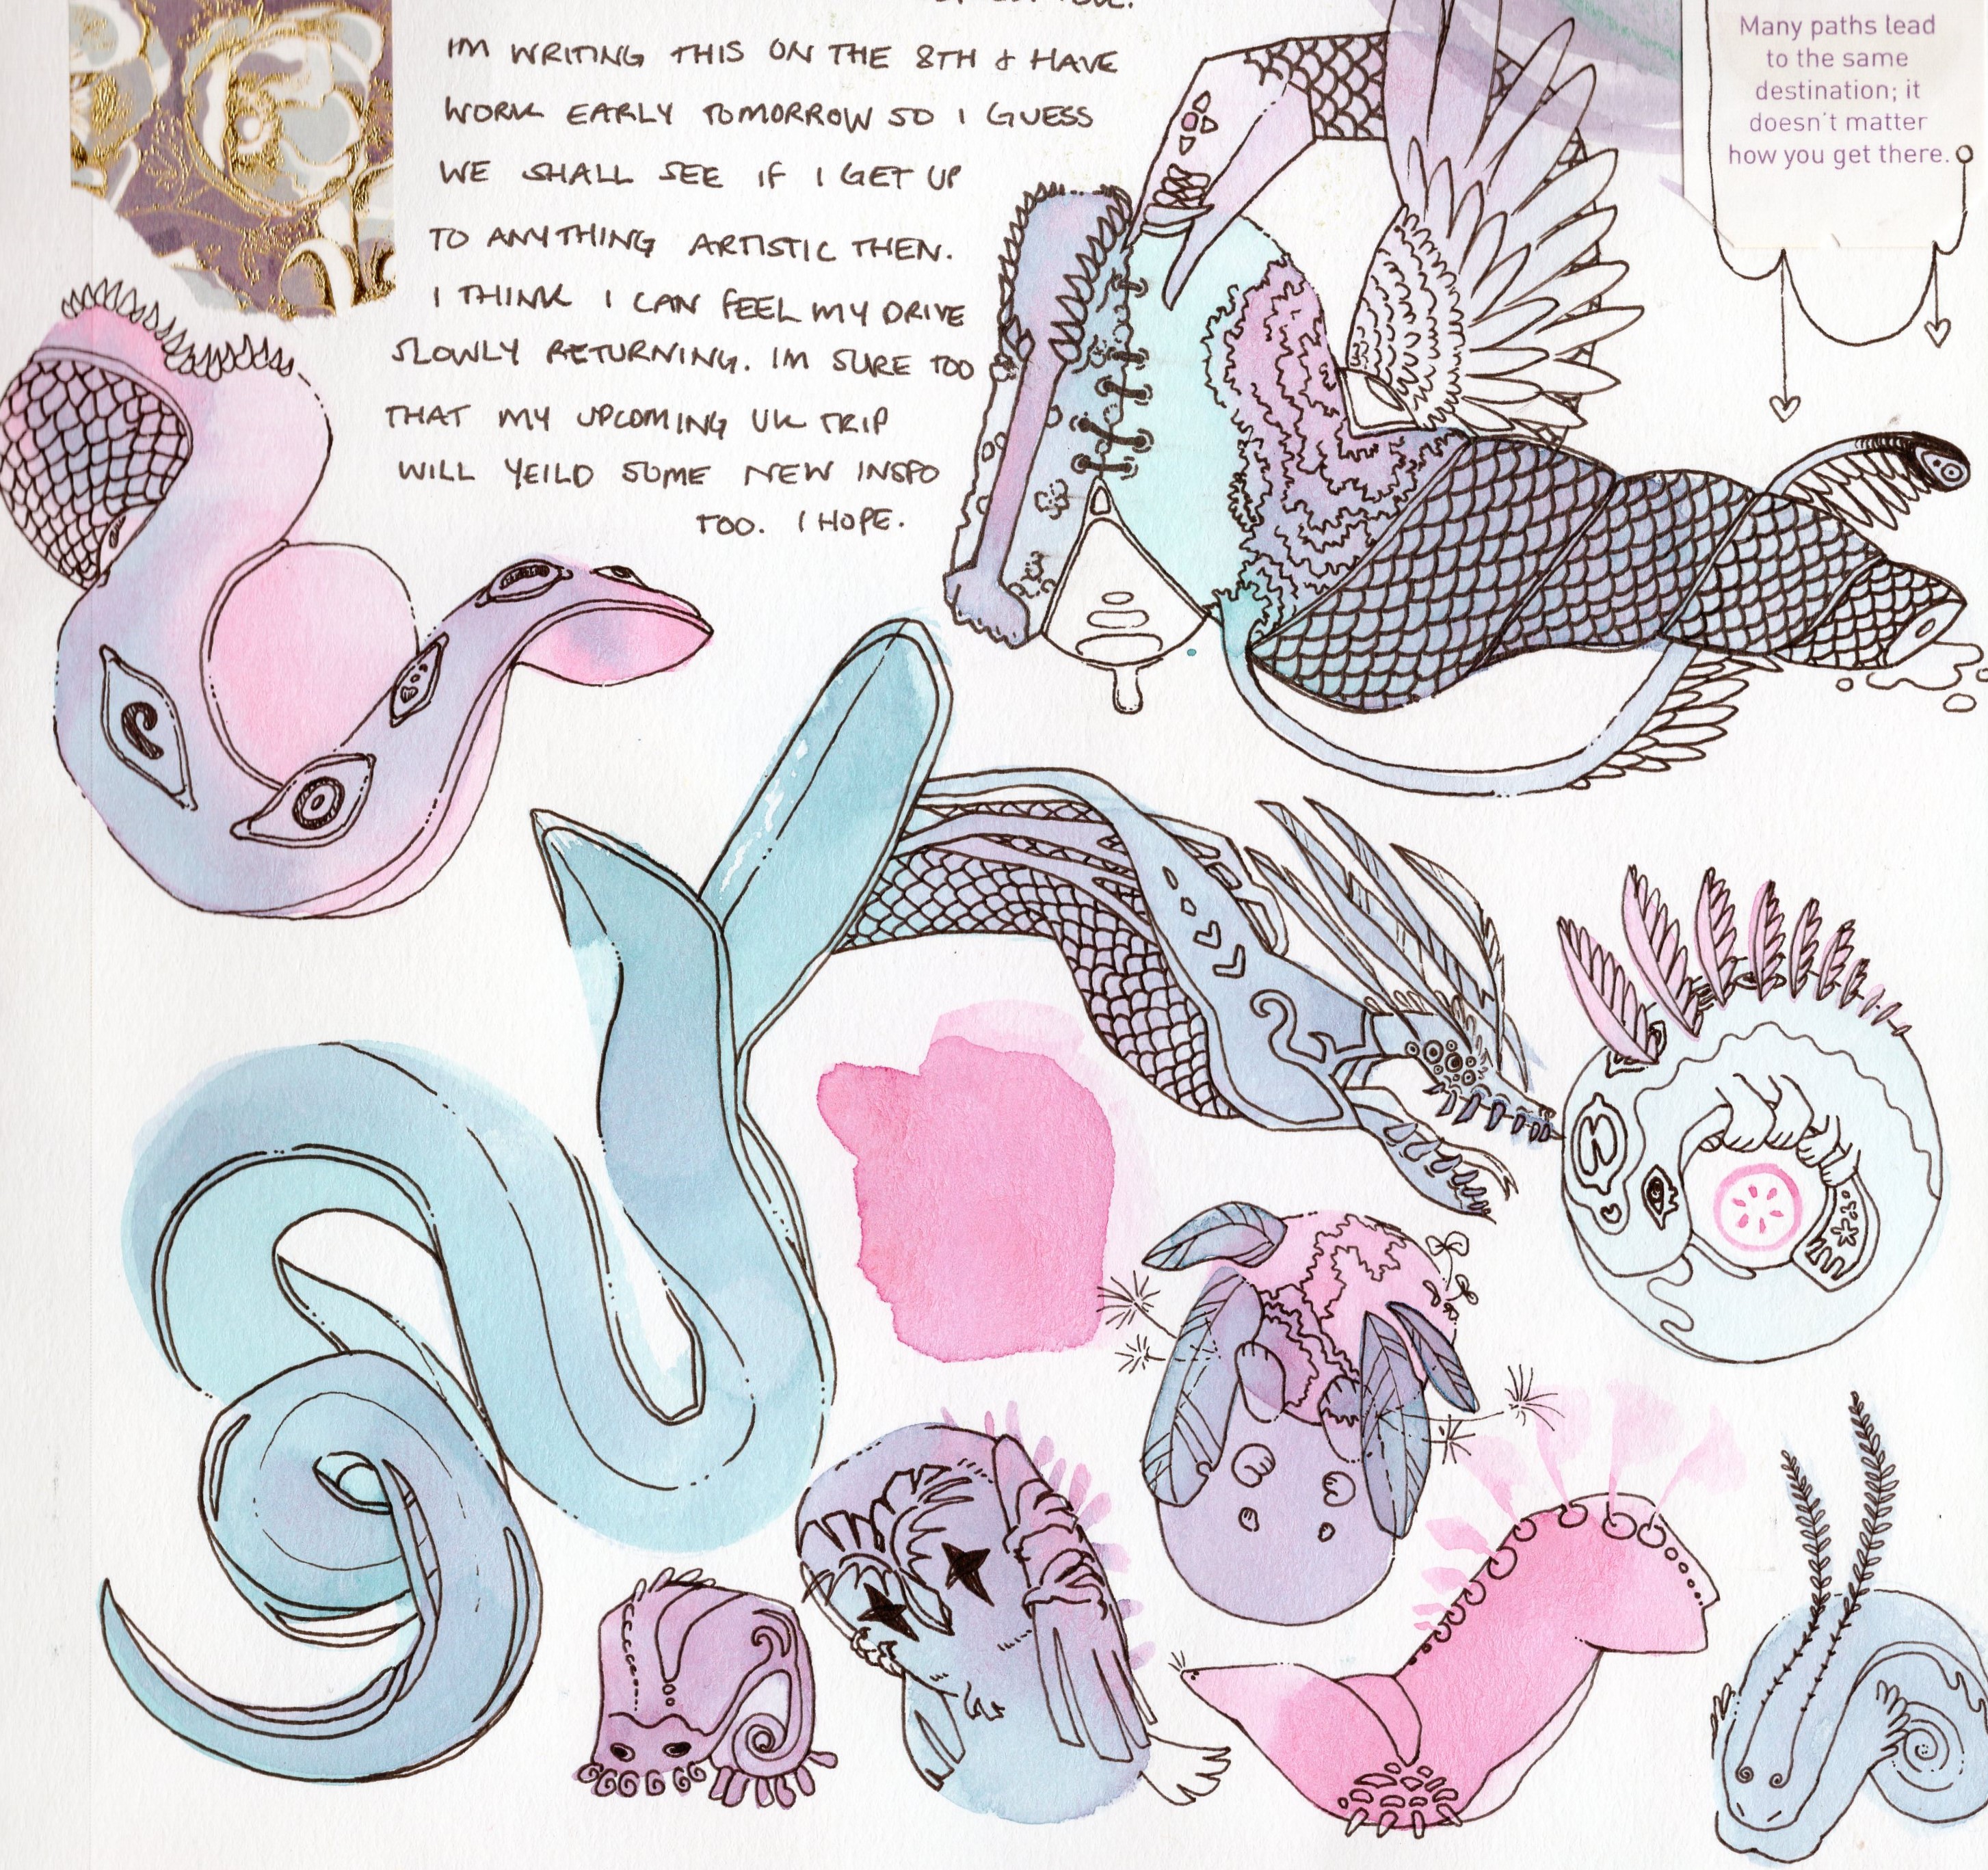 IM WRITING THIS ON THE 8TH & HAVE
WORK EARLY TOMORROW SO I GUESS
WE SHALL SEE IF I GET UP
TO ANYTHING ARTISTIC THEN.
I THINK I CAN FEEL MY DRIVE
SLOWLY RETURNING. IM SURE TOO
THAT MY UPCOMING UK TRIP
WILL YEILD SOME NEW INSPO
TOO. I HOPE.
Many paths lead
to the same
destination; it
doesn't matter
how you get there.